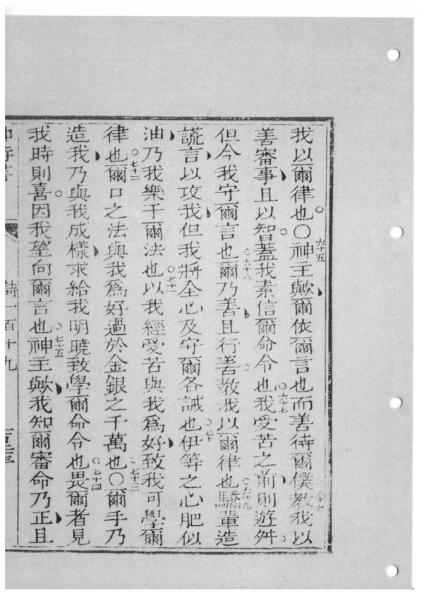 我以爾律也〇神主歟爾依爾言也而善待爾僕教我以
善審事且以智蓋我素信爾命令也我受苦之前則遊舛
但今我守爾言也爾乃善且行善教我以爾律也驕輩造
謊言以攻我但我將全心及守爾各誡也伊等之心肥似
油乃我樂于爾法也以我經受苦與我為好致我可學爾
律也爾口之法與我為好過於金銀之千萬也〇爾手乃
造我乃與我成樣求給我明曉致學爾命令也畏爾者見
我時則喜因我望向爾言也神主歟我知爾審命乃正且
詩一百十九